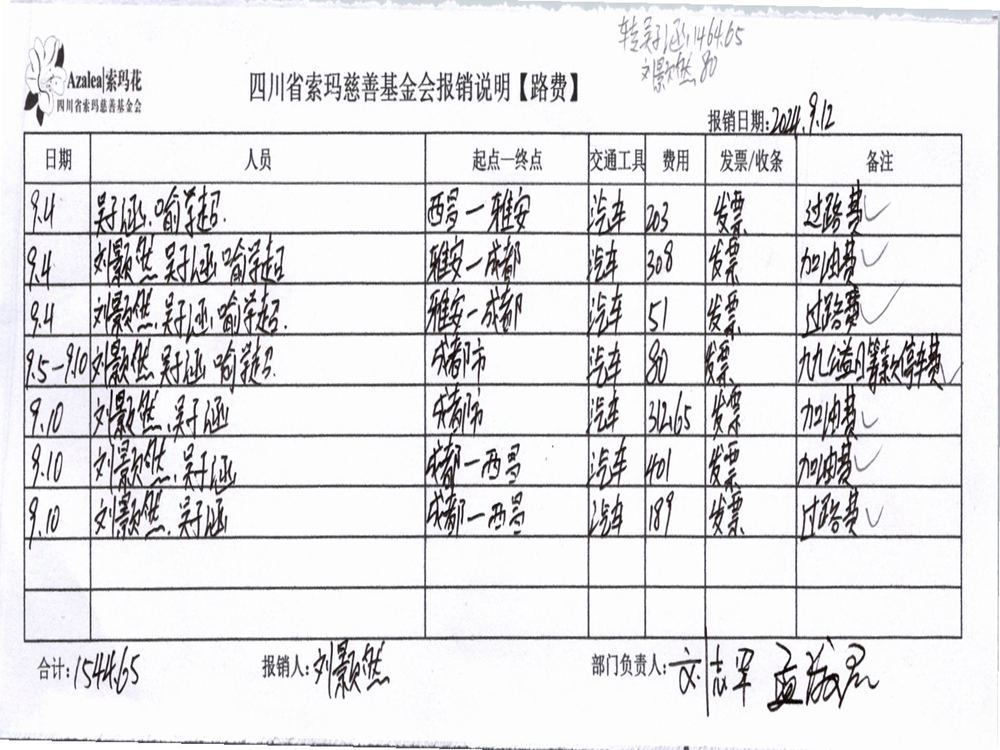 转吴于涵:1464.65
刘颢然 80
Azalea|索玛花
四川省索玛慈善基金会
四川省索玛慈善基金会报销说明【路费】
报销日期:2024.9.12
日期 人员 起点—终点 交通工具 费用 发票/收条 备注
9.4 吴于涵.喻学超. 西昌—雅安 汽车 203 发票 过路费✓
9.4 刘颢然.吴于涵 喻学超 雅安—成都 汽车 308 发票 加油费✓
9.4 刘颢然.吴于涵.喻学超. 雅安—成都 汽车 51 发票 过路费✓
9.5-9.10 刘颢然 吴于涵 喻学超. 成都市 汽车 80 发票 九九公益日筹款停车费✓
9.10 刘颢然.吴于涵 成都市 汽车 312.65 发票 加油费✓
9.10 刘颢然.吴于涵 成都—西昌 汽车 401 发票 加油费✓
9.10 刘颢然.吴于涵 成都—西昌 汽车 189 发票 过路费✓
合计:1544.65 报销人:刘颢然 部门负责人: